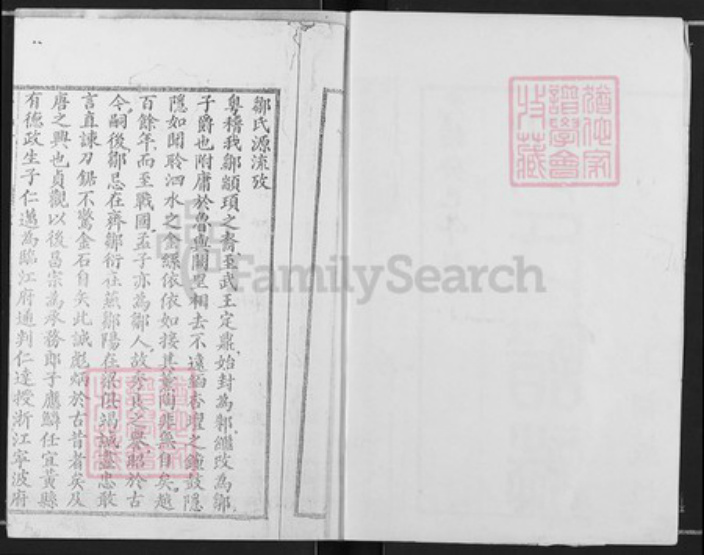 鄒氏源流攷
粵稽我鄒顓頊之裔至武王定鼎始封為邾繼改為鄒
子爵也附庸於魯與闕里相去不遠杏壇之鐘鼓隱
隱如聞聆泗水之金絲依依如接其薰陶非無自矣越
百餘年而至戰國孟子亦為鄒人故之舉昭於古
今嗣後鄒忌在齊鄒衍在燕鄒陽在梁俱竭誠盡忠敢
言直諫刀鋸不驚金石自矢此誠彪炳於古昔者矣及
唐之興也貞觀以後昌宗為承務郎子應鱗任宜黃縣
有德政生子仁邁為臨江府通判仁達授浙江寧波府
FamilySearch
猶他家譜學會收藏